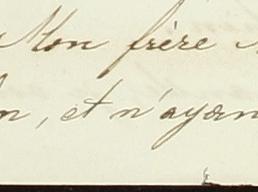 Mon frère
n, et n'ayan